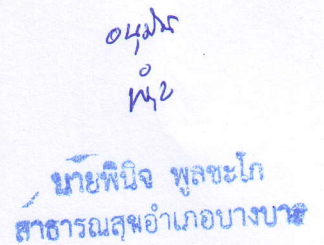 อนุมัติ
นายพินิจ พูลขะโก
สาธารณสุขอำเภอบางบาล